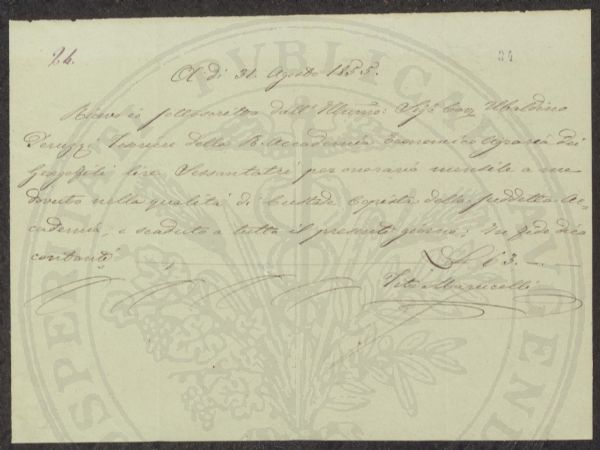 24.
34
A dì 31. Agosto 1855.
Ricevo io sottoscritto dall' Illmo: Sigr Cav Ubaldino
Peruzzi Tesoriere della R. Accademia Economico Agraria dei
Georgofili lire Sessantatrè per onorario mensile a me
dovuto nella qualità di Custode Copista della suddetta Ac-
cademia, e scaduto a tutto il presente giorno; In fede dico
contanti
£ 63. —
Marucelli
PROSPERITATI PVBLICAE AVGENDAE